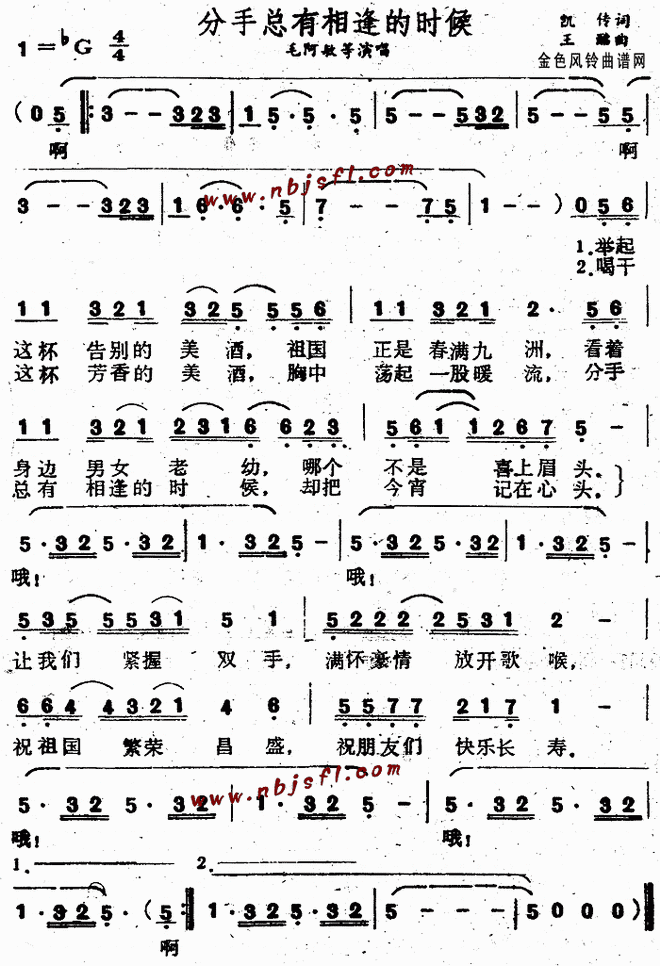 分手总有相逢的时候
1=♭G 4/4
毛阿敏等演唱
凯传词
王酩曲
金色风铃曲谱网
(0 5 ‖: 3 - - 323 | 1 5 · 5 · 5 | 5 - - 532 | 5 - - 55 |
啊 啊
www.nbjsfl.com
3 - - 323 | 1 6 · 6 · 5 | 7 - - 75 | 1 - - ) 0 56 |
1.举起
2.喝干
11 321 325 556 | 11 321 2 · 56 |
这杯 告别的 美酒, 祖国 正是 春满九洲, 看着
这杯 芳香的 美酒, 胸中 荡起 一股暖流, 分手
11 321 2316 623 | 561 1267 5 - |
身边 男女老幼, 哪个 不是 喜上眉头。
总有 相逢的时侯, 却把 今宵 记在心头。
5 · 32 5 · 32 | 1 · 32 5 - | 5 · 32 5 · 32 | 1 · 32 5 - |
哦! 哦!
535 5531 5 1 | 5222 2531 2 - |
让我们 紧握 双手, 满怀豪情 放开歌喉,
664 4321 4 6 | 5577 217 1 - |
祝祖国 繁荣 昌盛, 祝朋友们 快乐长寿。
www.nbjsfl.com
5 · 32 5 · 32 | 1 · 32 5 - | 5 · 32 5 · 32 |
哦! 哦!
1. 2.
1 · 32 5 · (5 :‖ 1 · 32 5 · 32 | 5 - - - | 5 0 0 0 ) ‖
啊